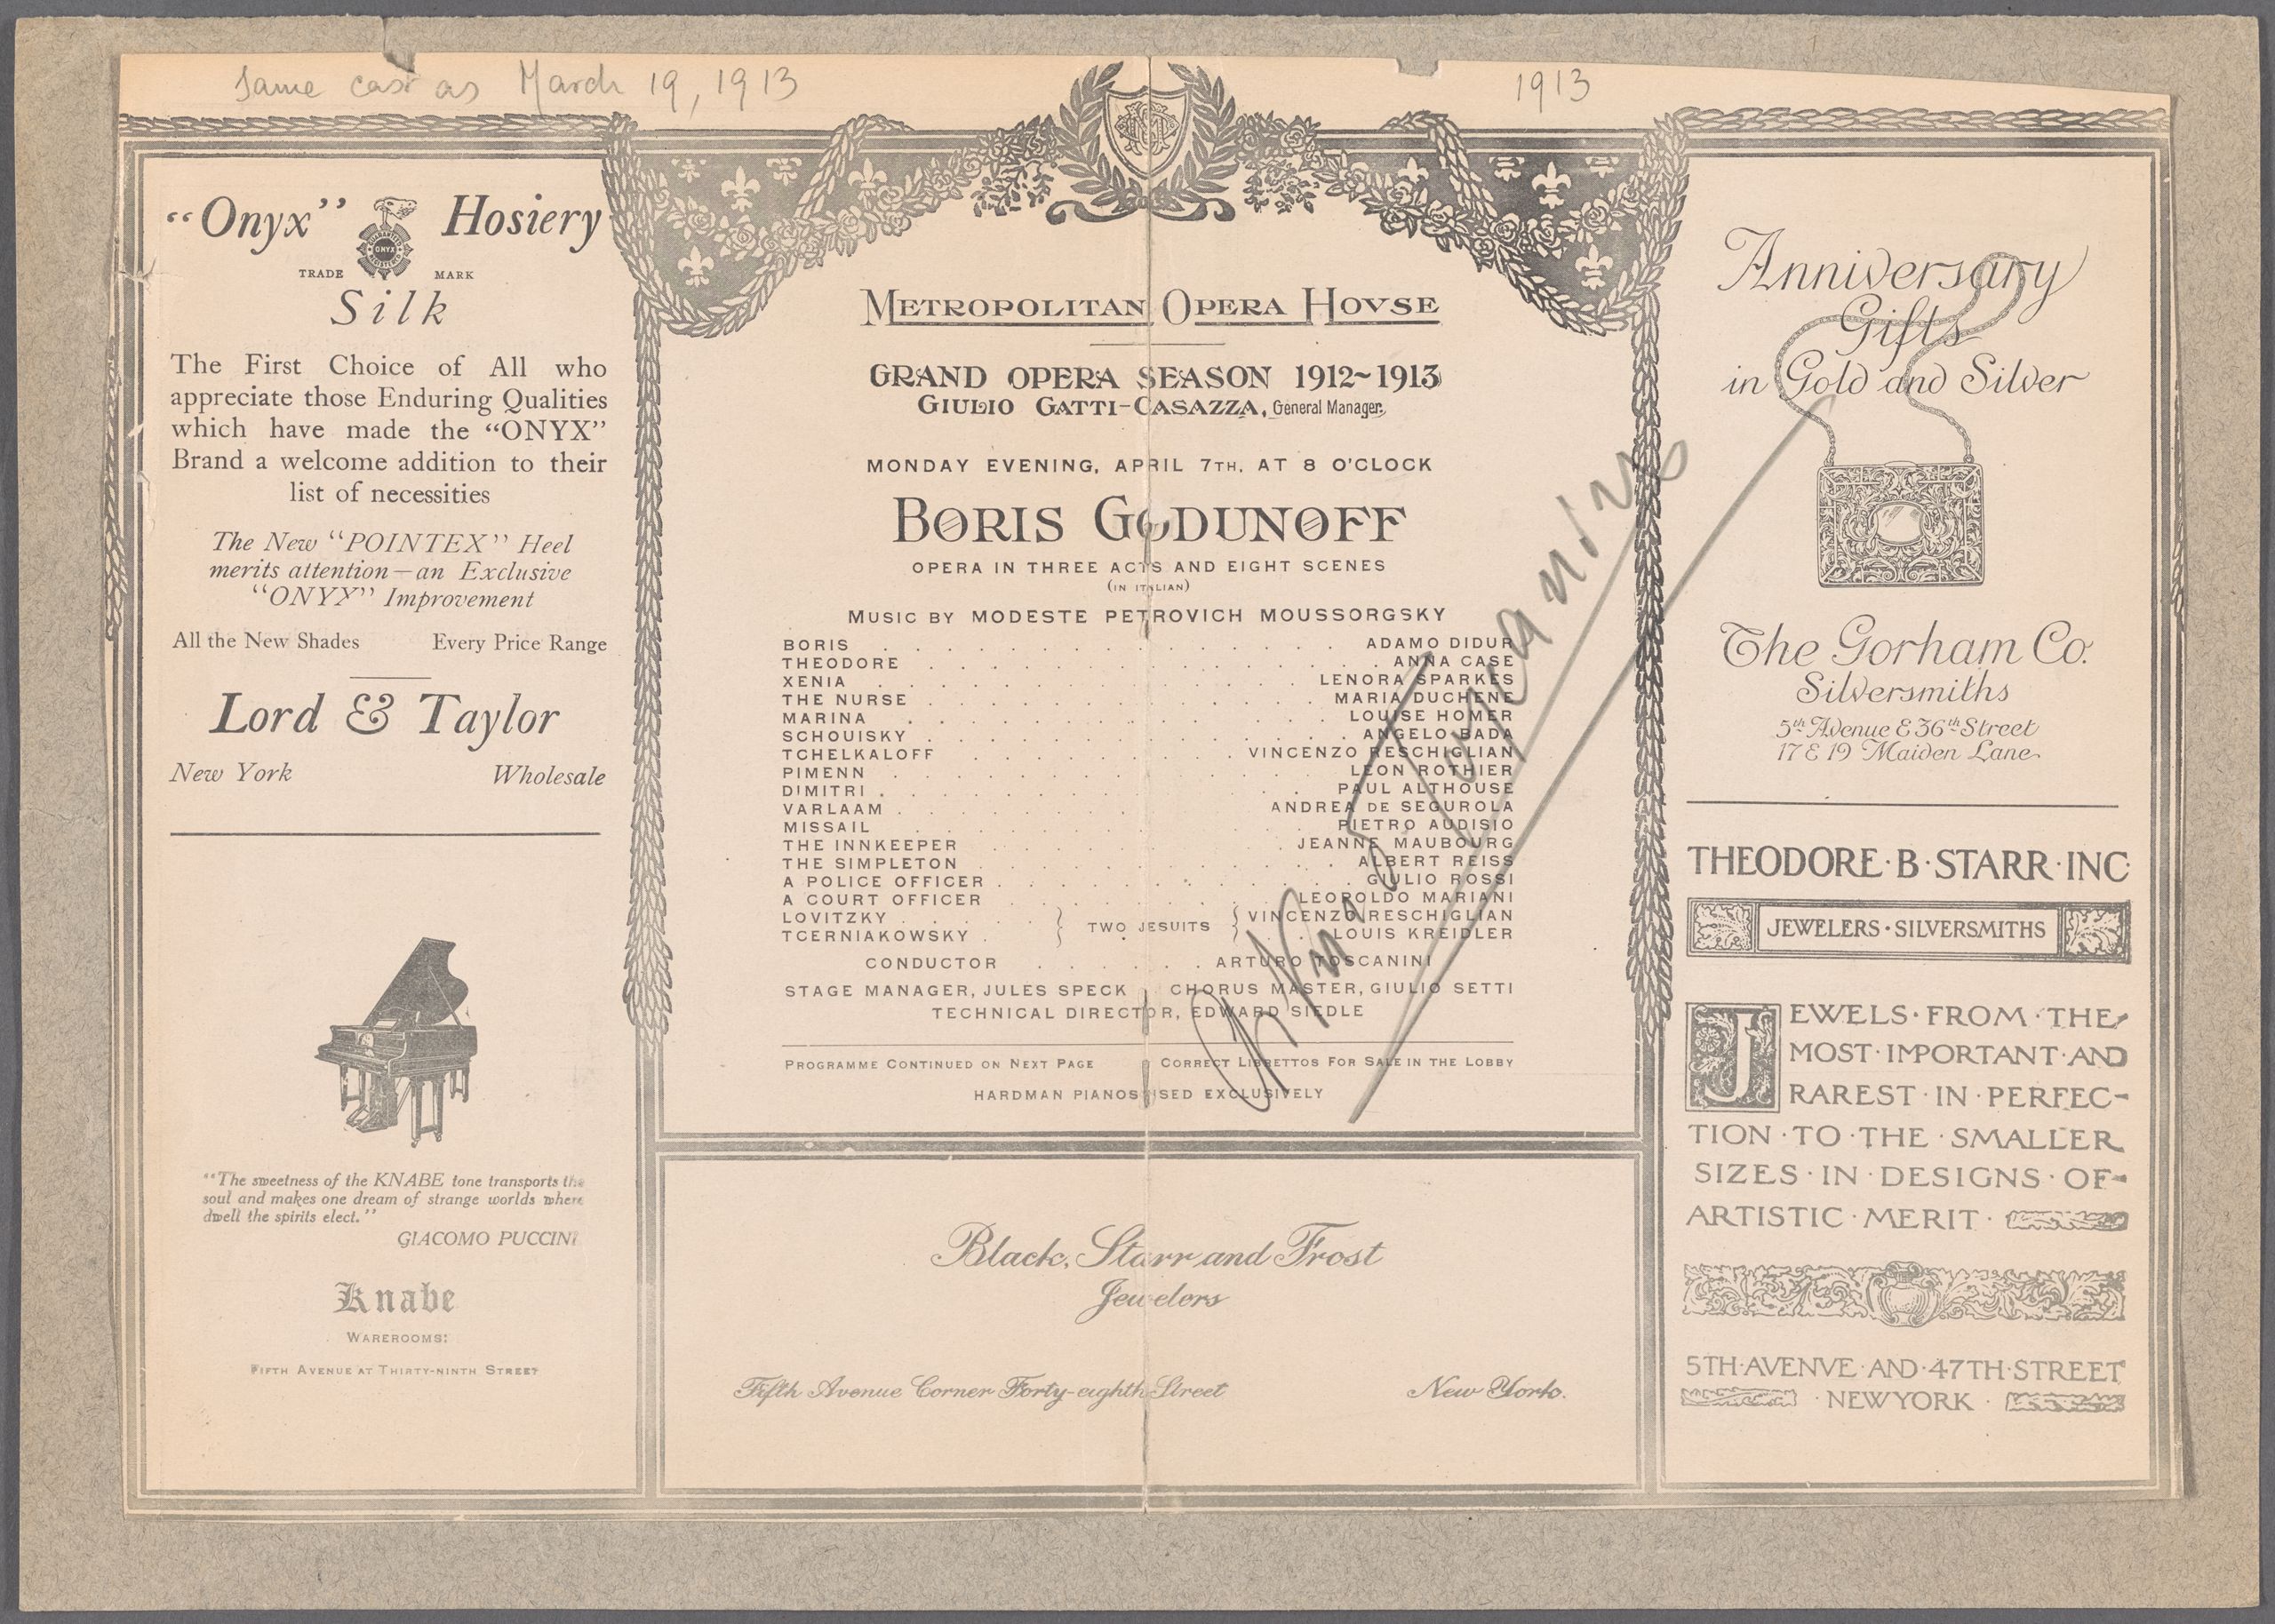 Same cast as March 19, 1913
1913
"Onyx" Hosiery
GUARANTEED
ONYX
REGISTERED
TRADE MARK
Silk
The First Choice of All who
appreciate those Enduring Qualities
which have made the "ONYX"
Brand a welcome addition to their
list of necessities
The New "POINTEX" Heel
merits attention—an Exclusive
"ONYX" Improvement
All the New Shades Every Price Range
Lord & Taylor
New York Wholesale
"The sweetness of the KNABE tone transports the
soul and makes one dream of strange worlds where
dwell the spirits elect."
GIACOMO PUCCINI
Knabe
WAREROOMS:
FIFTH AVENUE AT THIRTY-NINTH STREET
METROPOLITAN OPERA HOVSE
GRAND OPERA SEASON 1912~1913
GIULIO GATTI-CASAZZA, General Manager.
MONDAY EVENING, APRIL 7TH, AT 8 O'CLOCK
BORIS GODUNOFF
OPERA IN THREE ACTS AND EIGHT SCENES
(IN ITALIAN)
MUSIC BY MODESTE PETROVICH MOUSSORGSKY
BORIS . . . ADAMO DIDUR
THEODORE . . . ANNA CASE
XENIA . . . LENORA SPARKES
THE NURSE . . . MARIA DUCHENE
MARINA . . . LOUISE HOMER
SCHOUISKY . . . ANGELO BADA
TCHELKALOFF . . . VINCENZO RESCHIGLIAN
PIMENN . . . LEON ROTHIER
DIMITRI . . . PAUL ALTHOUSE
VARLAAM . . . ANDREA DE SEGUROLA
MISSAIL . . . PIETRO AUDISIO
THE INNKEEPER . . . JEANNE MAUBOURG
THE SIMPLETON . . . ALBERT REISS
A POLICE OFFICER . . . GIULIO ROSSI
A COURT OFFICER . . . LEOPOLDO MARIANI
LOVITZKY . . . } TWO JESUITS { VINCENZO RESCHIGLIAN
TCERNIAKOWSKY . } { . . LOUIS KREIDLER
CONDUCTOR . . . ARTURO TOSCANINI
STAGE MANAGER, JULES SPECK CHORUS MASTER, GIULIO SETTI
TECHNICAL DIRECTOR, EDWARD SIEDLE
PROGRAMME CONTINUED ON NEXT PAGE CORRECT LIBRETTOS FOR SALE IN THE LOBBY
HARDMAN PIANOS USED EXCLUSIVELY
Black, Starr and Frost
Jewelers
Fifth Avenue Corner Forty-eighth Street New York.
Anniversary
Gifts
in Gold and Silver
The Gorham Co.
Silversmiths
5th Avenue & 36th Street
17 & 19 Maiden Lane
THEODORE·B·STARR·INC
JEWELERS·SILVERSMITHS
JEWELS·FROM·THE
MOST·IMPORTANT·AND
RAREST·IN·PERFEC-
TION·TO·THE·SMALLER
SIZES·IN·DESIGNS·OF
ARTISTIC·MERIT·
5TH·AVENVE·AND·47TH·STREET
·NEW YORK·